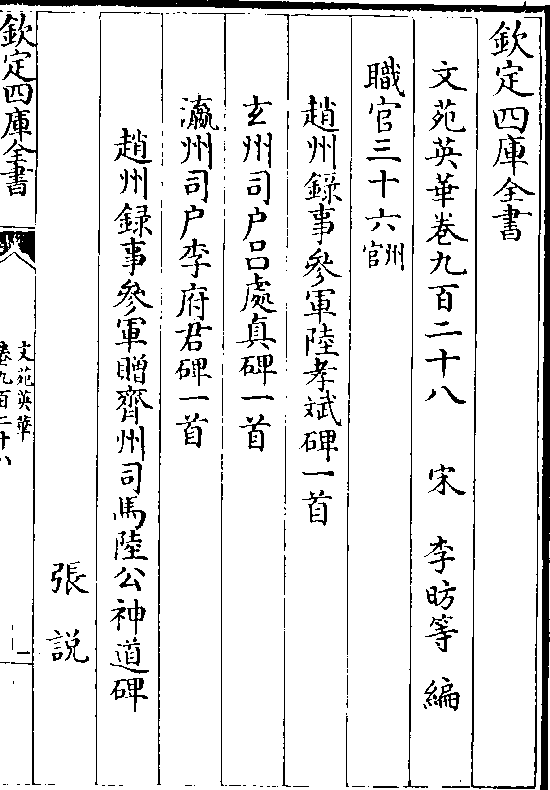 欽定四庫全書
文苑英華卷九百二十八 宋 李昉等 編
職官三十六州官
趙州錄事參軍陸孝斌碑一首
玄州司户吕處真碑一首
瀛州司户李府君碑一首
趙州録事參軍贈齊州司馬陸公神道碑
張説
欽定四庫全書
文苑英華
卷九百二十八
一